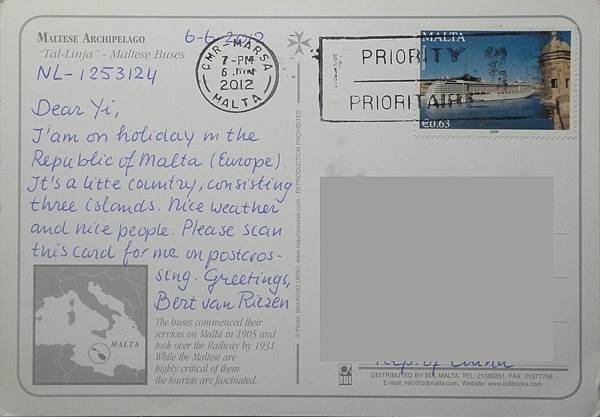 MALTESE ARCHIPELAGO
"Tal-Linja" - Maltese Buses
6-6-2012
NL-1253124
Dear Yi,
I'am on holiday in the
Republic of Malta (Europe).
It's a litte country, consisting
three islands. Nice weather
and nice people. Please scan
this card for me on postcros-
sing. Greetings,
Bert van Riezen
MALTA
The buses commenced their
services on Malta in 1905 and
took over the Railway by 1931.
While the Maltese are
highly critical of them
the tourists are fascinated.
CMR-MARSA
7-PM
6 JUN
2012
MALTA
PRIORITY
PRIORITAIRE
MALTA
€0.63
© Photo: MAURIZIO URSO, www.mauriziourso.com - REPRODUCTION PROHIBITED
Rep. of
BDL
DISTRIBUTED BY BDL MALTA. TEL: 21380351, FAX: 21377768
E-mail: info@bdlmalta.com, Website: www.bdlbooks.com